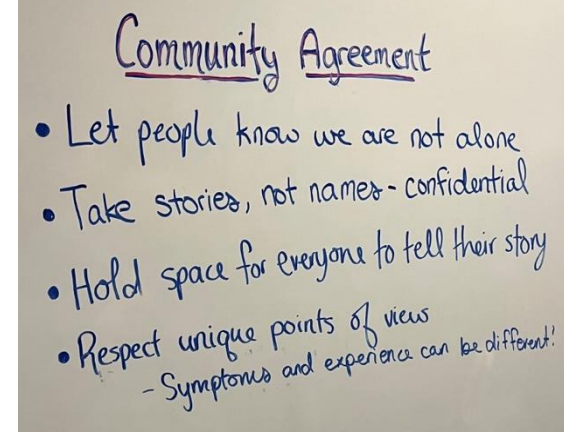 Community Agreement
• Let people know we are not alone
• Take stories, not names - confidential
• Hold space for everyone to tell their story
• Respect unique points of view
- Symptoms and experience can be different!